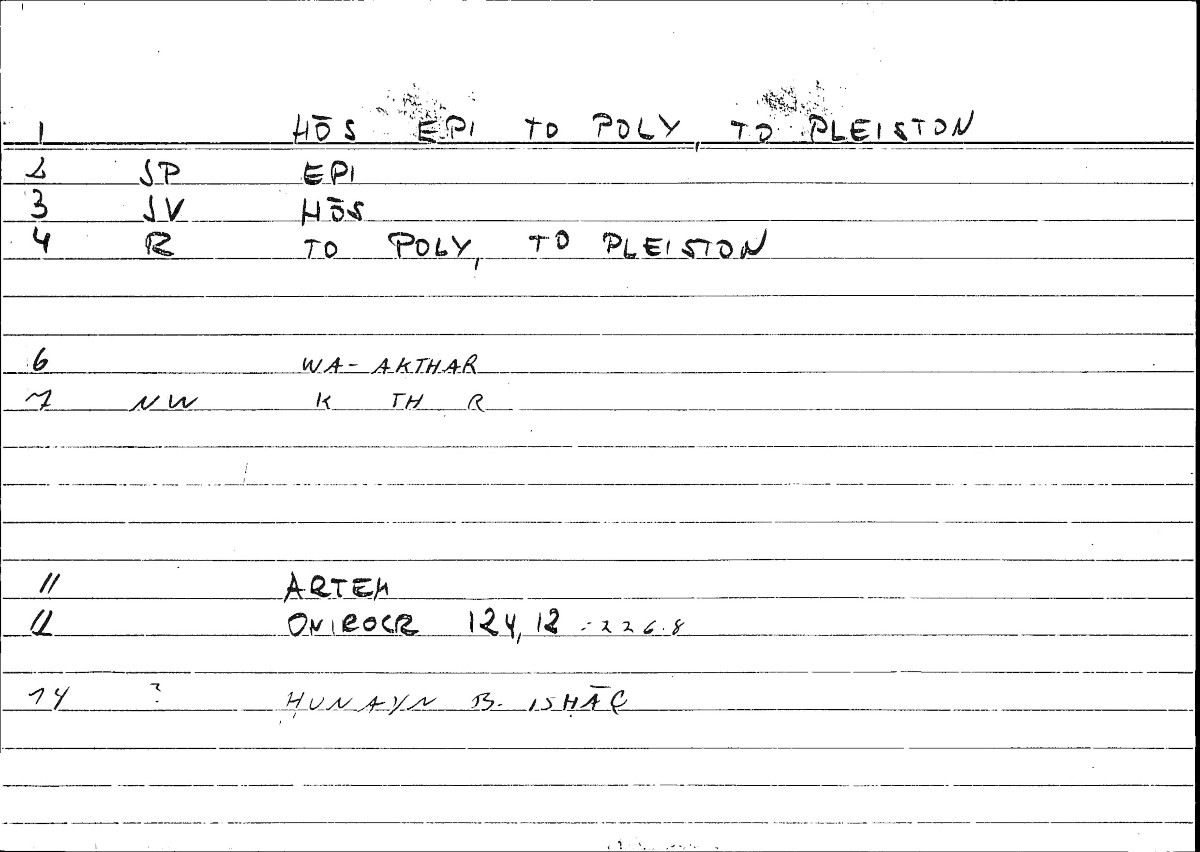 1 HŌS EPI TO POLY, TO PLEISTON
2 SP EPI
3 SV HŌS
4 R TO POLY, TO PLEISTON
6 WA- AKTHAR
7 NW K TH R
11 ARTEM
12 ONIROCR 124,12 = 226.8
14 ? ḤUNAYN B. ISḤĀQ